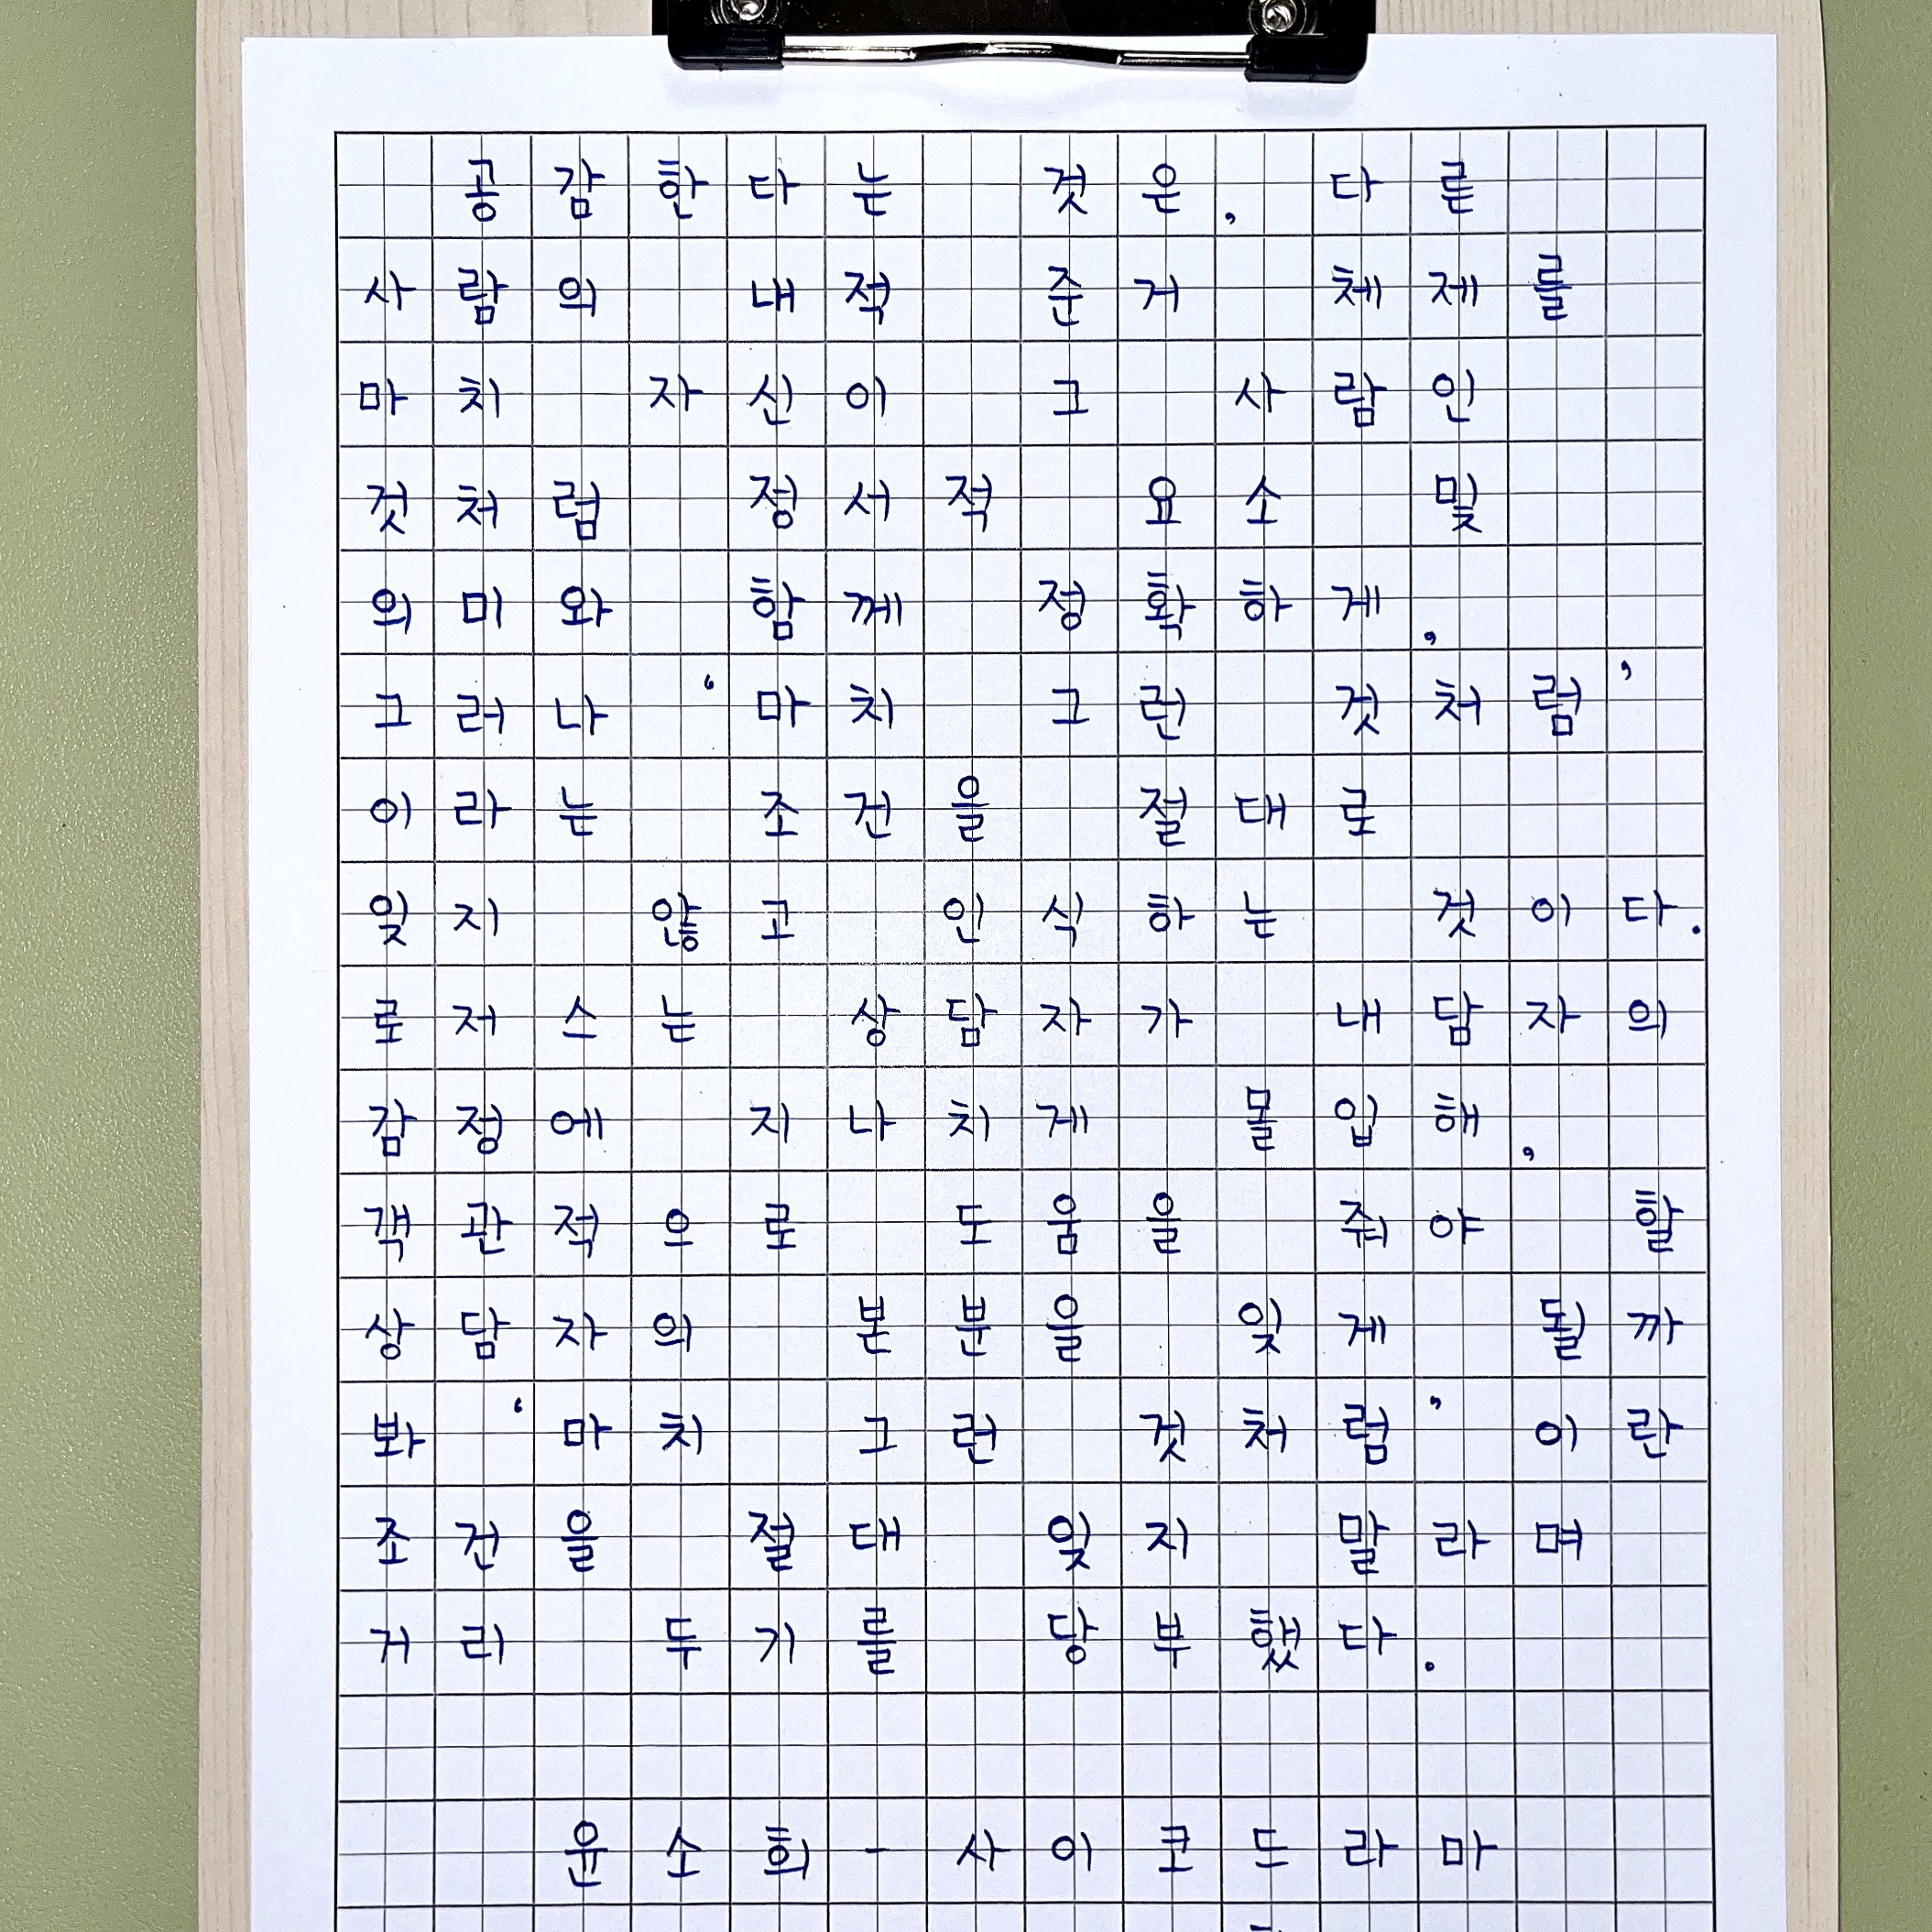 공감한다는 것은, 다른
사람의 내적 준거 체제를
마치 자신이 그 사람인
것처럼 정서적 요소 및
의미와 함께 정확하게,
그러나 ‘마치 그런 것처럼’
이라는 조건을 절대로
잊지 않고 인식하는 것이다.
로저스는 상담자가 내담자의
감정에 지나치게 몰입해,
객관적으로 도움을 줘야 할
상담자의 본분을 잊게 될까
봐 ‘마치 그런 것처럼’이란
조건을 절대 잊지 말라며
거리 두기를 당부했다.
윤소희-사이코드라마